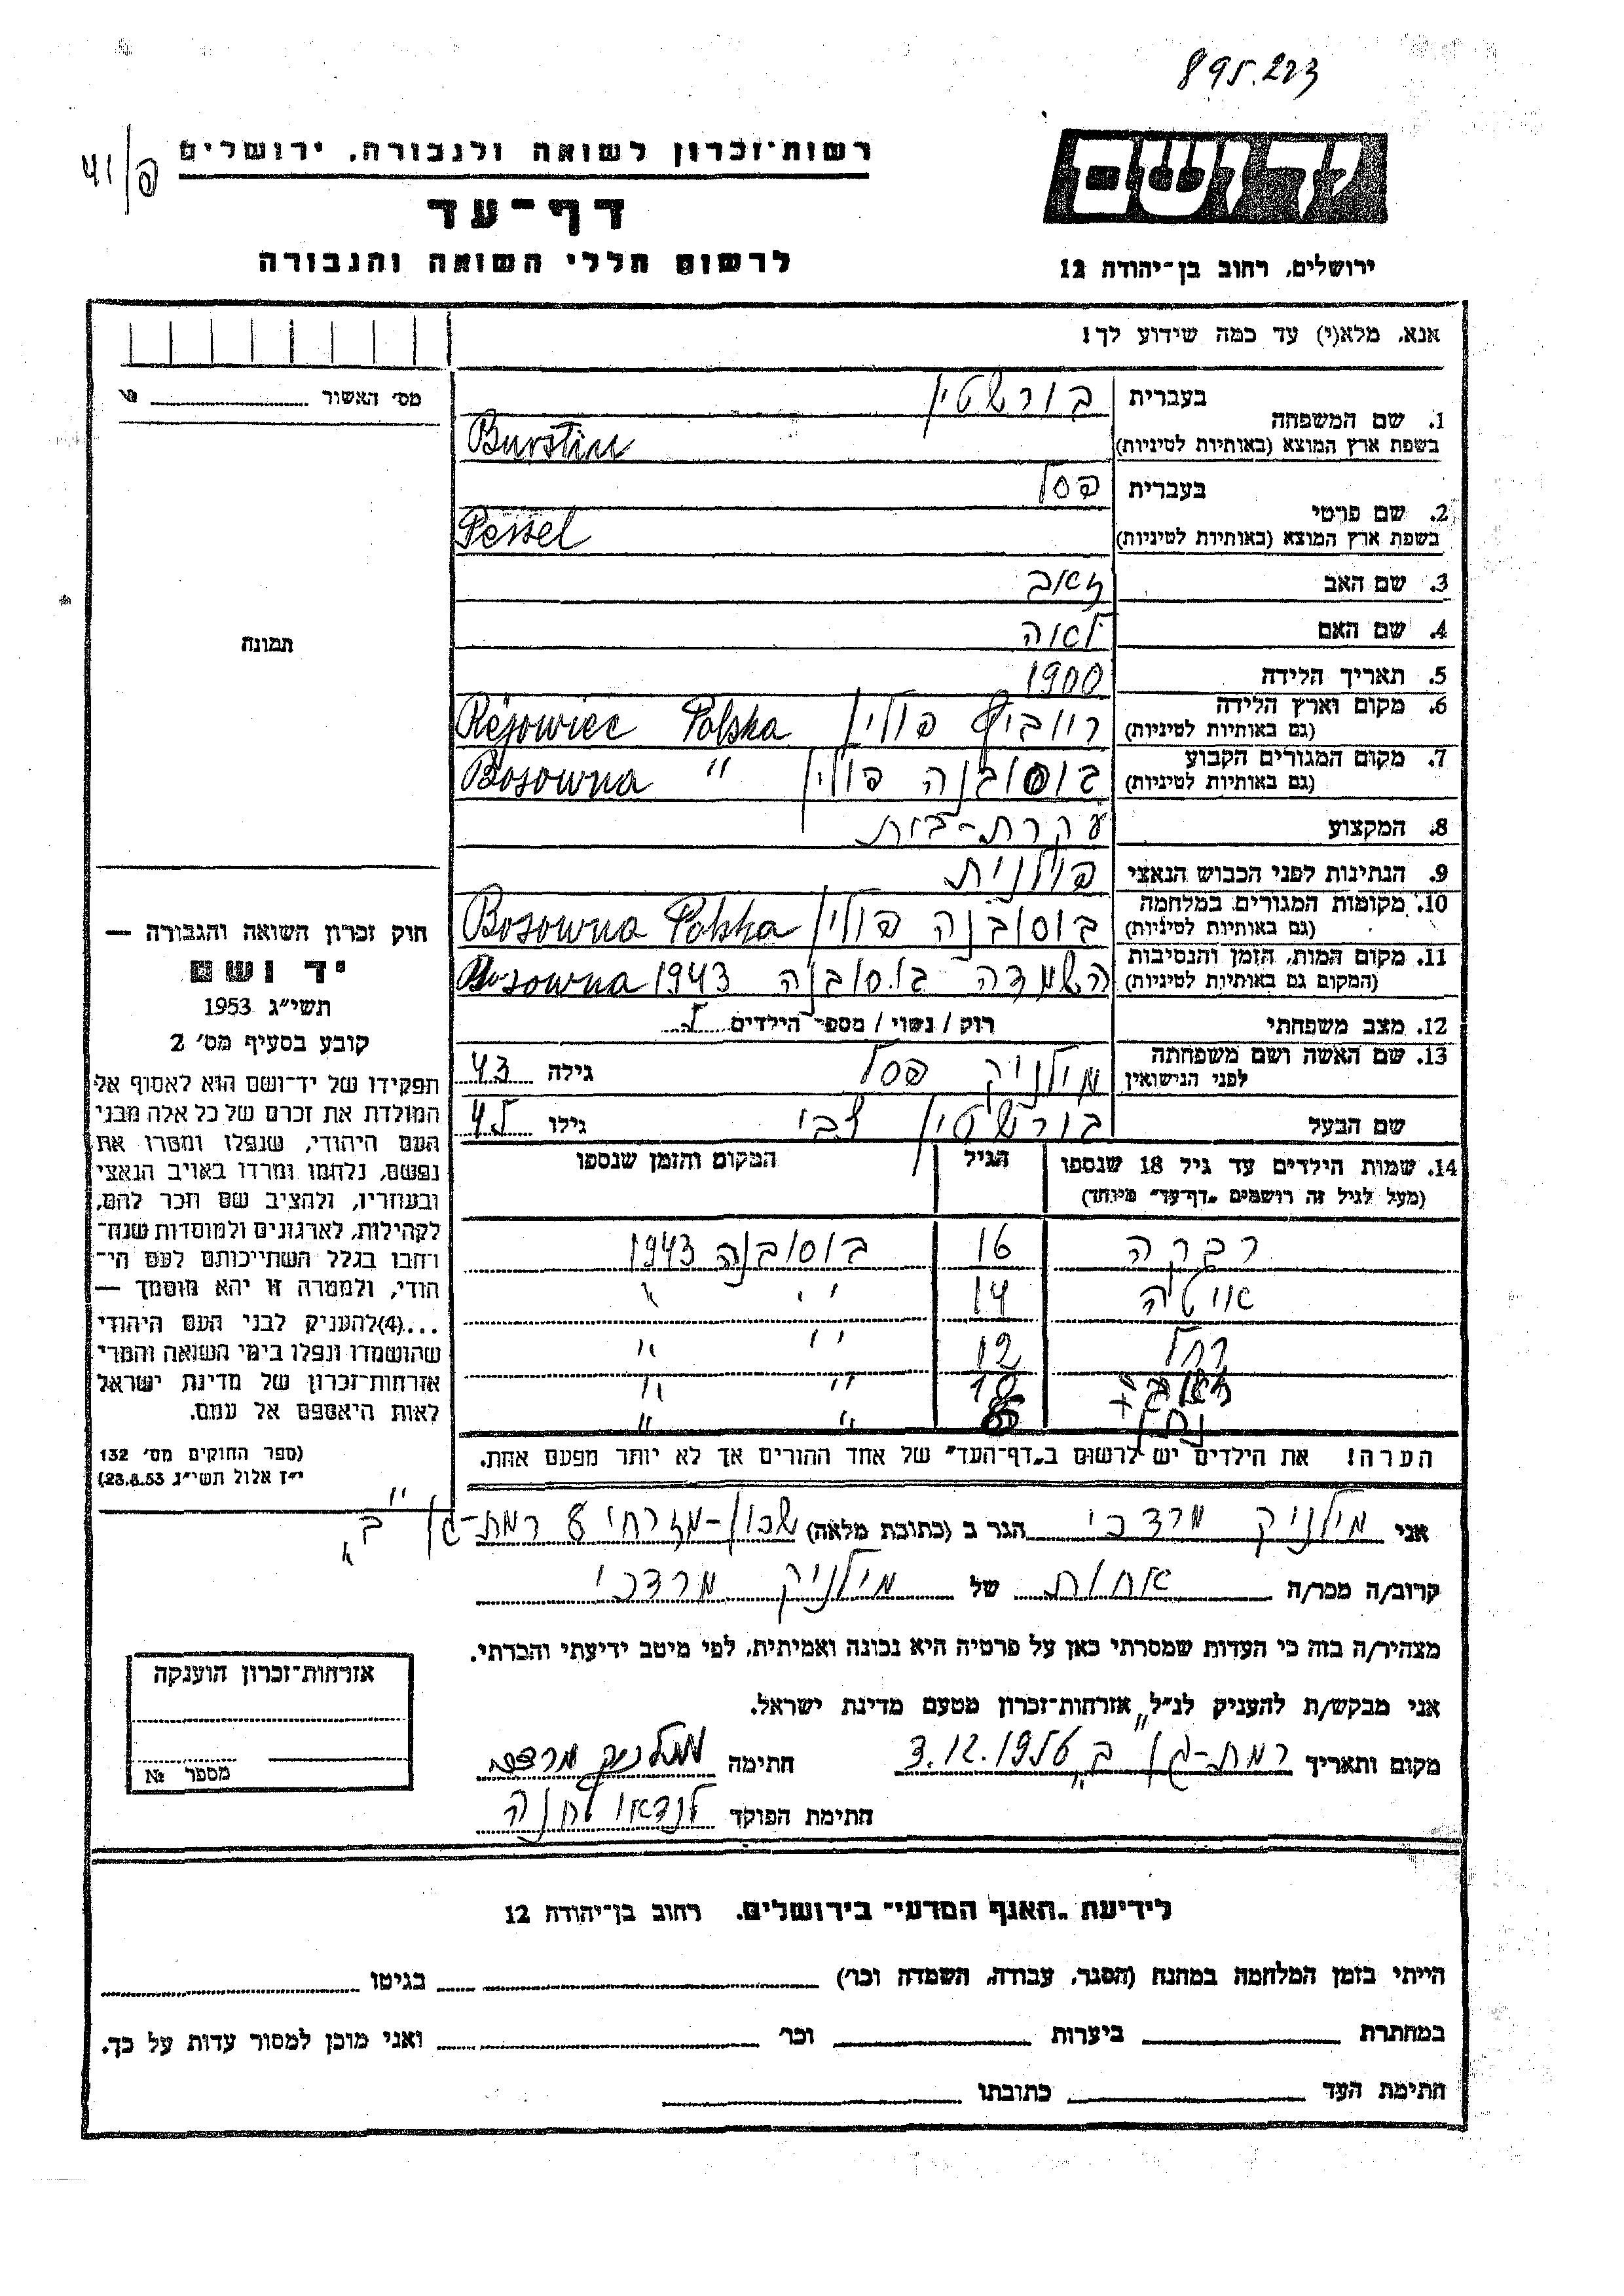 895.223
פ/41
רשות־זכרון לשואה ולגבורה, ירושלים
דף־עד
לרשום חללי השואה והגבורה
יד ושם
ירושלים, רחוב בן־יהודה 12
אנא, מלא(י) עד כמה שידוע לך!
מס׳ האשור №
1. שם המשפחה בעברית בורשטין
בשפת ארץ המוצא (באותיות לטיניות) Burstin
2. שם פרטי בעברית פסל
בשפת ארץ המוצא (באותיות לטיניות) Pessel
3. שם האב זאב
4. שם האם לאה
5. תאריך הלידה 1900
6. מקום וארץ הלידה (גם באותיות לטיניות) פולין Rejowiec Polska
7. מקום המגורים הקבוע (גם באותיות לטיניות) בוסובנה פולין Bosowna "
8. המקצוע עקרת-בית
9. הנתינות לפני הכבוש הנאצי פולנית
10. מקומות המגורים במלחמה (גם באותיות לטיניות) בוסובנה פולין Bosowna Polska
11. מקום המות, הזמן והנסיבות (המקום גם באותיות לטיניות) השמדה בוסובנה Bosowna 1943
12. מצב משפחתי רוק / נשוי / מספר הילדים
13. שם האשה ושם משפחתה לפני הנישואין מילניק פסל גילה 43
שם הבעל בורשטין צבי גילו 45
14. שמות הילדים עד גיל 18 שנספו (מעל לגיל זה רושמים „דף־עד" מיוחד) הגיל המקום והזמן שנספו
רבקה 16 בוסובנה 1943
איטה 14 " "
רחל 12 " "
זאב 10 " "
" "
הערה! את הילדים יש לרשום ב„דף־העד" של אחד ההורים אך לא יותר מפעם אחת.
תמונה
חוק זכרון השואה והגבורה —
יד ושם
תשי״ג 1953
קובע בסעיף מס׳ 2
תפקידו של יד־ושם הוא לאסוף אל
המולדת את זכרם של כל אלה מבני
העם היהודי, שנפלו ומסרו את
נפשם, נלחמו ומרדו באויב הנאצי
ובעוזריו, ולהציב שם וזכר להם,
לקהילות, לארגונים ולמוסדות שנח־
רבו בגלל השתייכותם לעם הי־
הודי, ולמטרה זו יהא מוסמך —
...(4)להעניק לבני העם היהודי
שהושמדו ונפלו בימי השואה והמרי
אזרחות־זכרון של מדינת ישראל
לאות היאספם אל עמם.
(ספר החוקים מס׳ 132
י״ז אלול תשי״ג 28.8.53)
אני מילניק מרדכי הגר ב (כתובת מלאה) שכון-מזרחי 8 רמת-גן ב"
קרוב/ה מכר/ה אחות של מילניק מרדכי
מצהיר/ה בזה כי העדות שמסרתי כאן על פרטיה היא נכונה ואמיתית, לפי מיטב ידיעתי והכרתי.
אני מבקש/ת להעניק לנ״ל אזרחות־זכרון מטעם מדינת ישראל.
מקום ותאריך רמת-גן ב" 3.12.1956 חתימה מילניק מרדכי
חתימת הפוקד לנדאו חנה
אזרחות־זכרון הוענקה
מספר №
לידיעת „האגף המדעי" בירושלים. רחוב בן־יהודה 12
הייתי בזמן המלחמה במחנה (הסגר, עבודה, השמדה וכו׳) בגיטו
במחתרת ביערות וכו׳ ואני מוכן למסור עדות על כך.
חתימת העד כתובתו